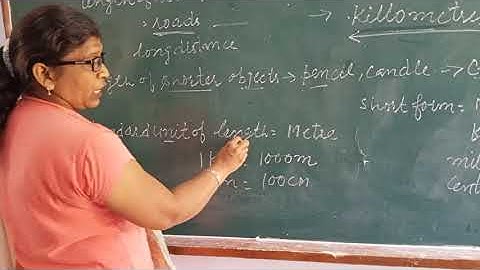 length of
> roads → Killometre
long distance
ngth of shorter objects → pencil, candle →
short form =
ndard unit of length = Metre
1 K = 1000m
m = 100cm
mil
Cent